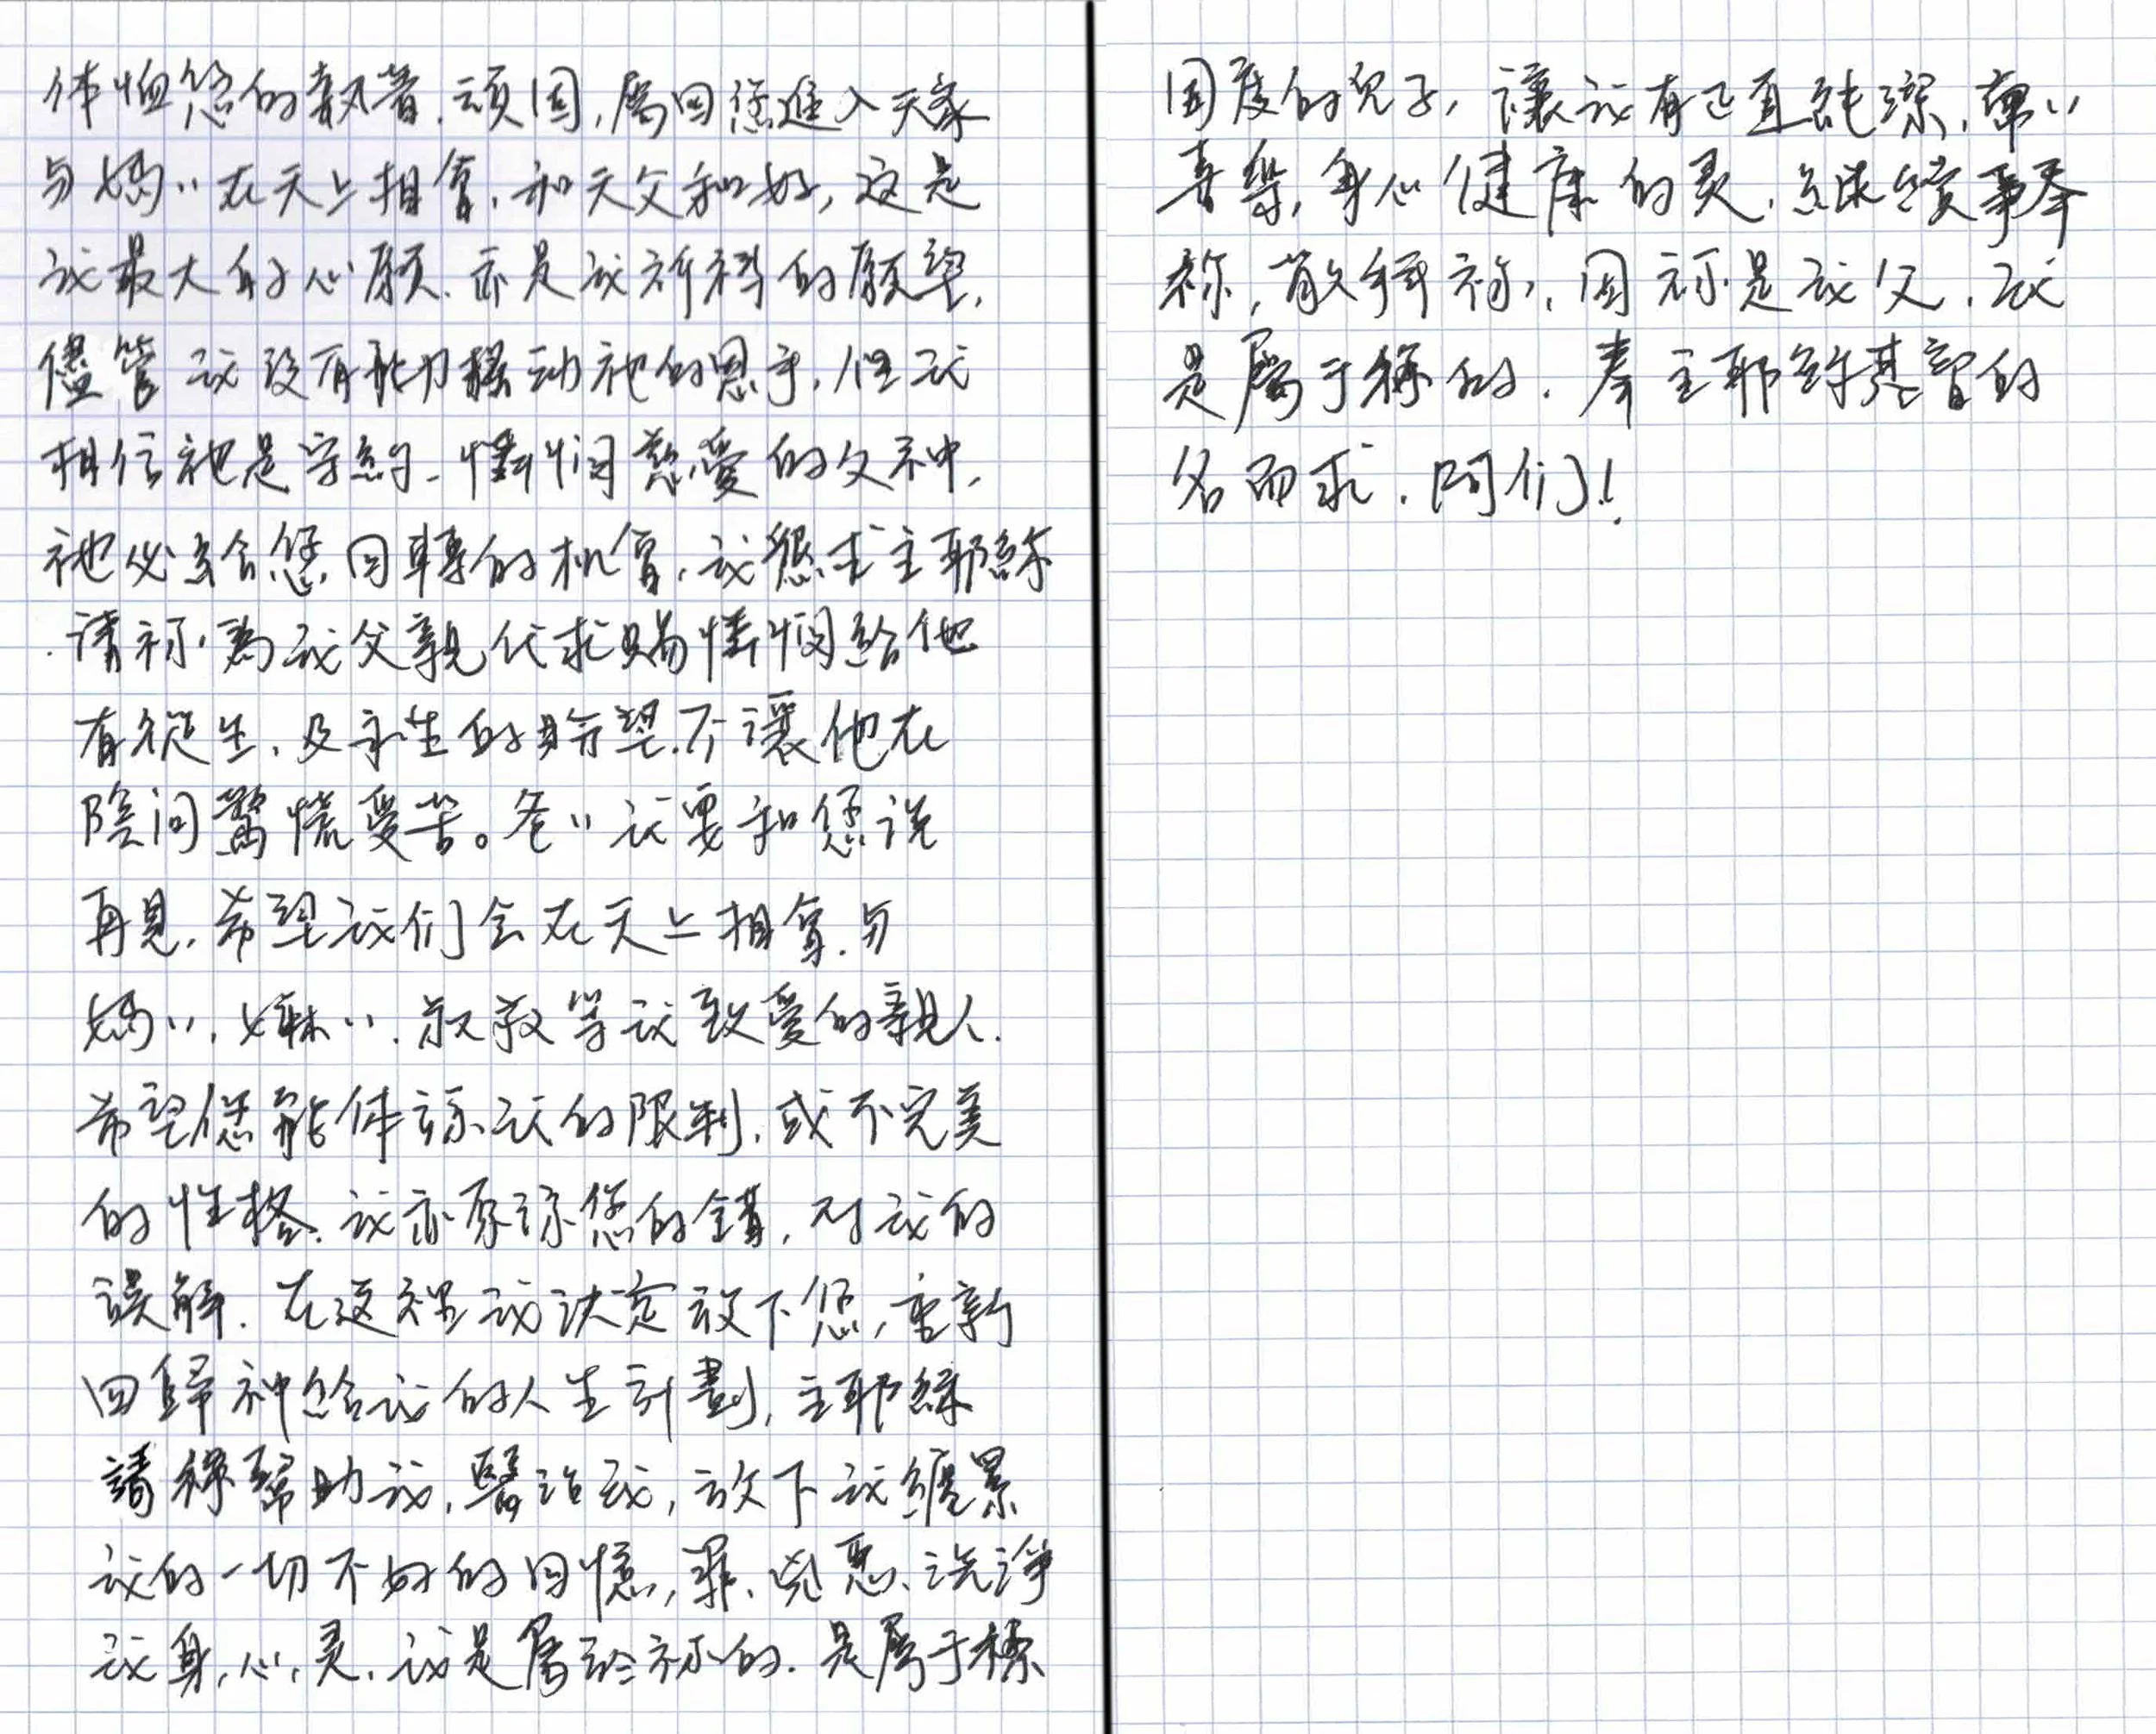 体恤您的執著、頑固,屬回您進入天家
与媽〃在天上相會,和天父和好,这是
我最大的心願,亦是我祈禱的願望,
儘管我沒有能力搖动祂的恩手,但我
相信祂是守約、憐憫慈愛的父神,
祂必会給您回轉的机會,我懇求主耶穌
請祢為我父親代求賜憐憫給他
有從生、及永生的盼望,不讓他在
陰间驚慌受苦。爸〃我要和您说
再見,希望我们会在天上相會,与
媽〃,嫲〃,叔叔等我致愛的親人.
希望您能体諒我的限制,或不完美
的性格,我亦原諒您的錯,对我的
誤解.在这裡我決定放下您,重新
回歸神給我的人生計劃,主耶穌
請祢幫助我,醫治我,放下我纏累
我的一切不好的回憶,罪,兇惡、洗淨
我身,心,灵,我是屬於祢的.是屬于祢
国度的兒子,讓我有正直純潔,單〃
喜樂,身心健康的灵,繼續事奉
祢,敬拜祢,因祢是我父,我
是屬于祢的.奉主耶穌基督的
名而求.阿们!